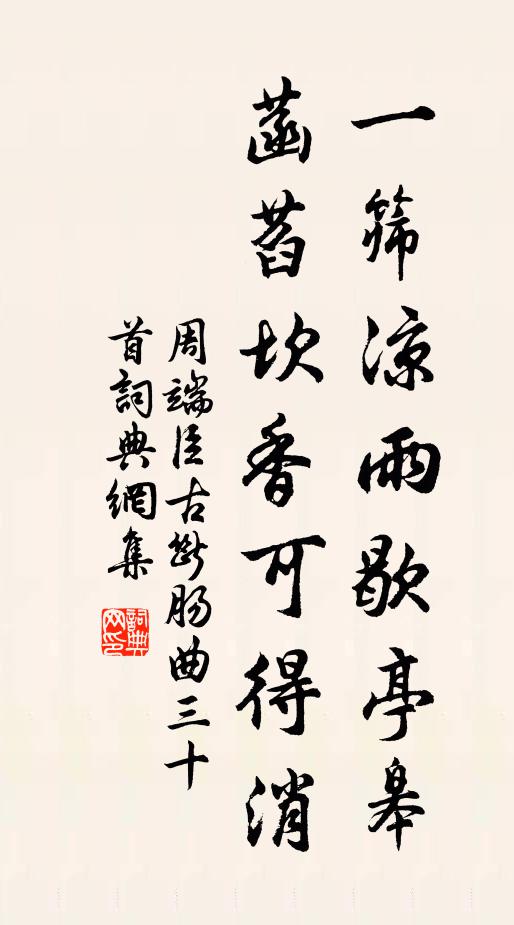 一篩涼雨歇亭皋
菡萏坎香可得消
周端臣古斷腸曲三十
首詞典網集
詞典
网印